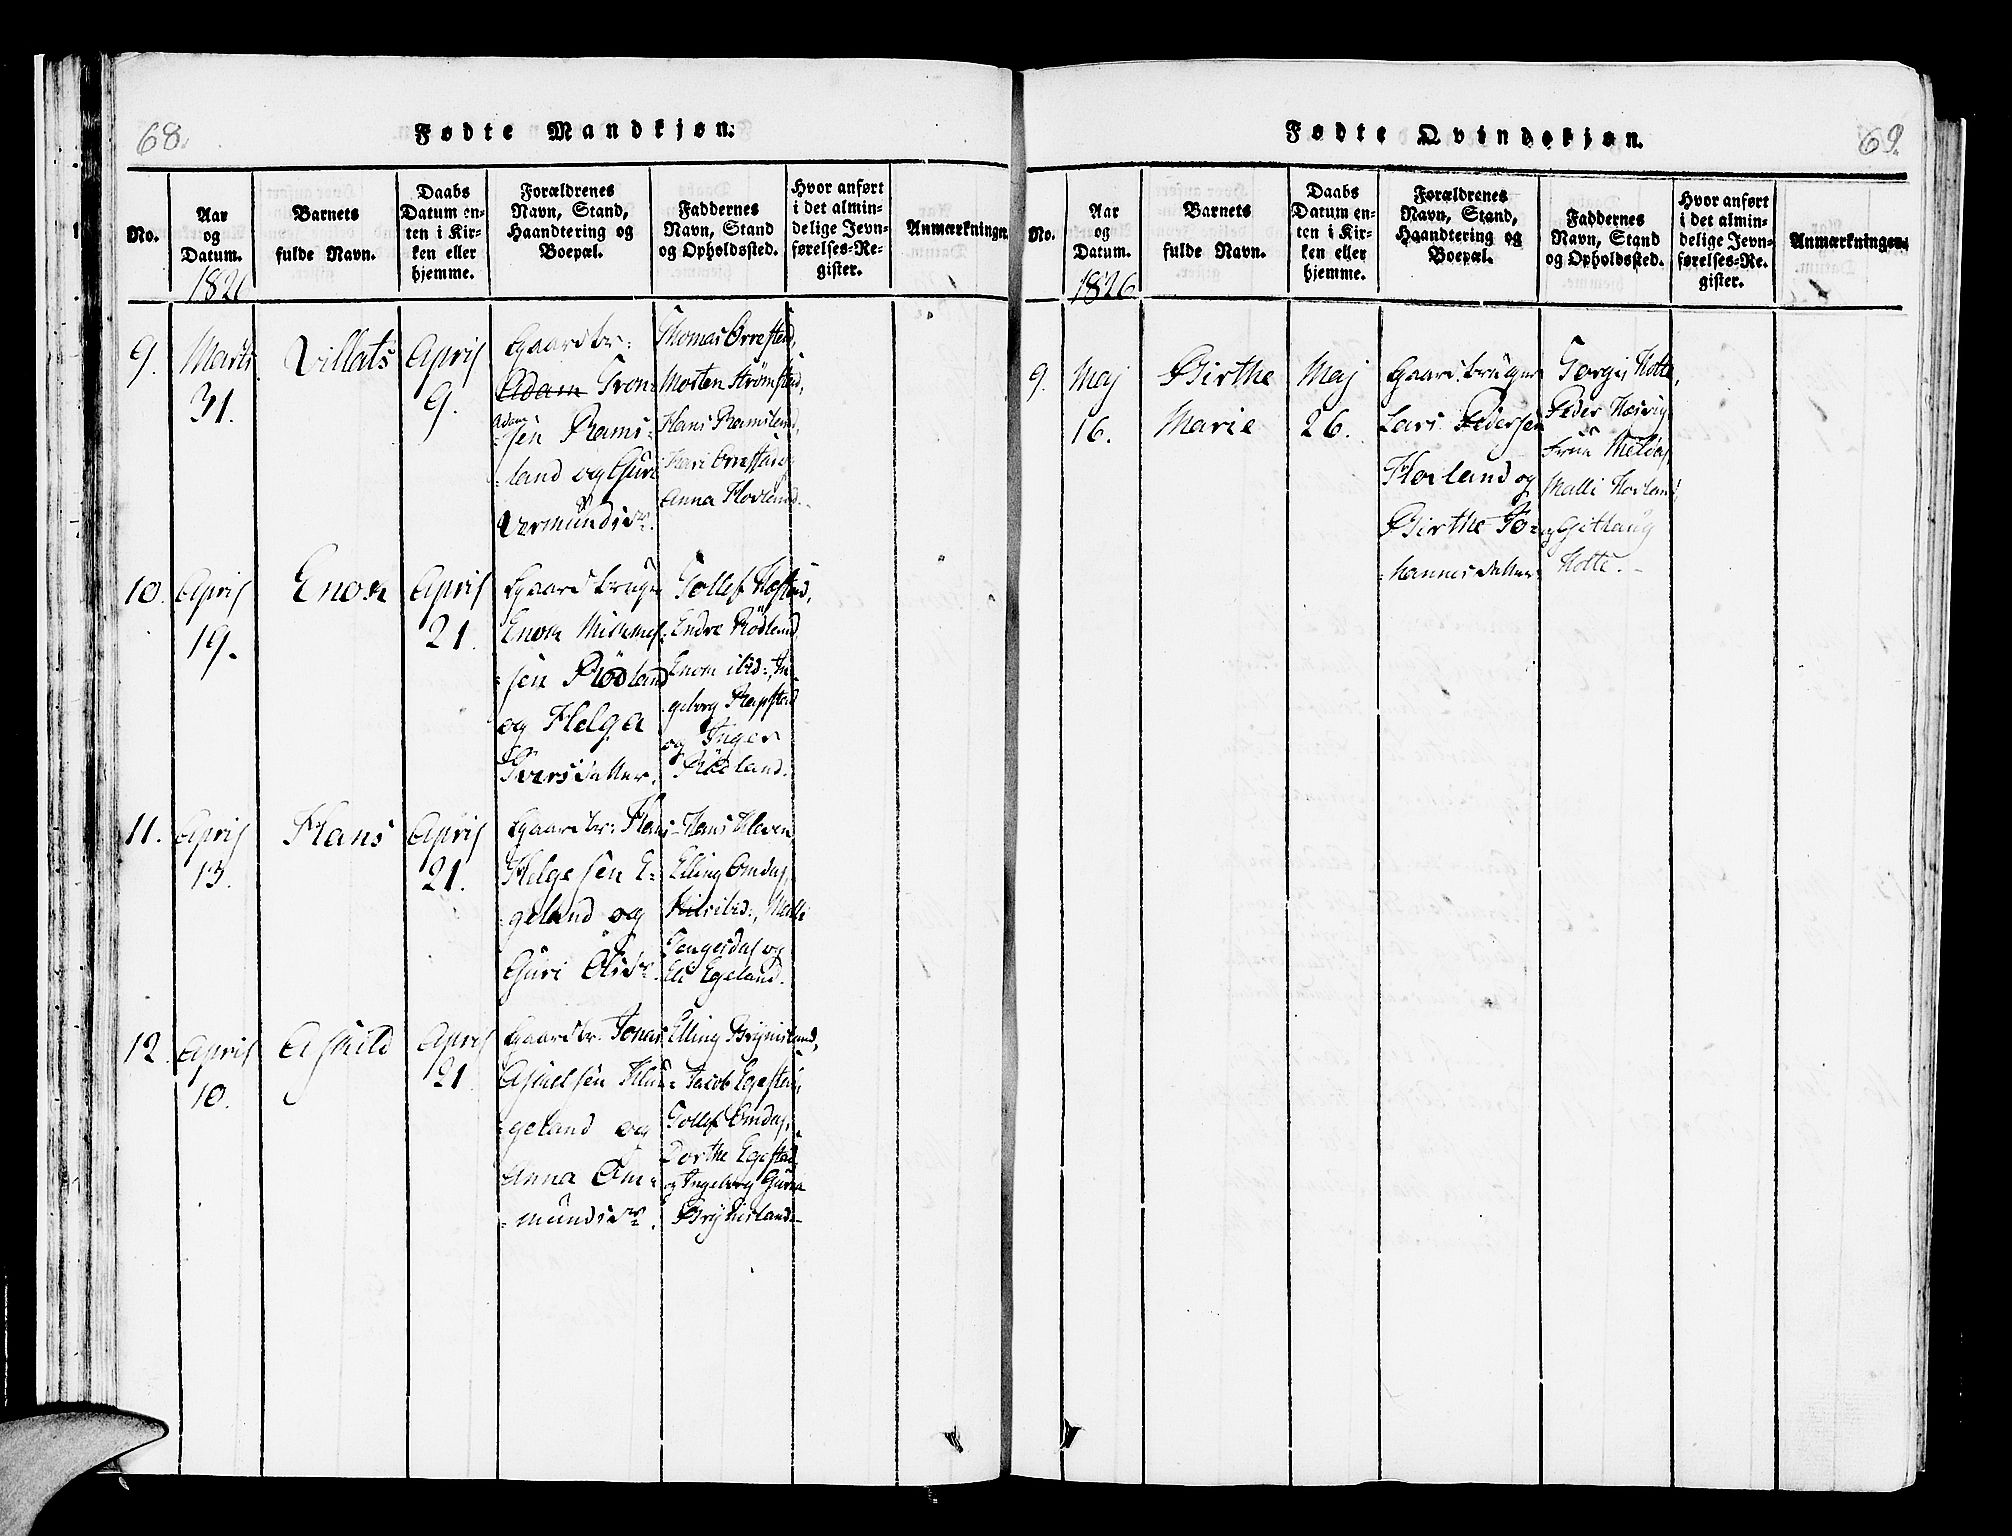 68.
Fødte Mandkjøn.
No.
Aar
og
Datum.
1826
Barnets
fulde Navn.
Daabs
Datum en-
ten i Kir-
ken eller
hjemme.
Forældrenes
Navn, Stand,
Haandtering og
Boepæl.
Faddernes
Navn, Stand
og Opholdssted.
Hvor anført
i det almin-
delige Jevn-
førelses-Re-
gister.
Anmærkninger
9.
Marts
31.
Villats
April
9.
Gaardbr:
Adam Tron-
Adam
-sen Rams-
-land og Guri
Vermundsdr.
Thomas Orrestad,
Morten Strømstad,
Hans Ramsland,
Kari Orrestad og
Anna Hovland.
10.
April
19.
Enok
April
21.
Gaardbruger
Enok Mikkel-
-sen Rödland
og Helga
Iversdatter.
Tollef Hæstad,
Endre Rödland
Enok ibid:, In-
geborg Rapstad
og Inger
Rödland.
11.
April
13.
Hans
April
21.
Gaardbr: Hans
Helgesen E-
-geland og
Guri Olsdr.
Hans Kleven
Elling Omdal,
ibid:, Malli
Tengesdal og
Eli Egeland.
12.
April
10.
Askild
April
21
Gaardbr. Jonas
Askielsen Hau-
-geland og
Anna Om-
-mundsdr.
Elling Brynisland,
Jacob Egestad,
Tollef Omdal,
Dorthe Egestad
og Ingeborg Guria
Brynisland.
69.
Fødte Qvindekjøn.
No.
Aar
og
Datum.
1826
Barnets
fulde Navn.
Daabs
Datum en-
ten i Kir-
ken eller
hjemme.
Forældrenes
Navn, Stand,
Haandtering og
Boepæl.
Faddernes
Navn, Stand
og Opholdssted.
Hvor anført
i det almin-
delige Jevn-
førelses-Re-
gister.
Anmærkninger.
9.
Maj
16.
Birthe
Marie
Maj
26.
Gaardbruger
Lars Pedersen
Hovland og
Birthe Jo-
-hannesdatter.
Torgis Hotte,
Peder Hæsvig
Frue Meldal,
Malli Hovland
og Githaug
Hotte.